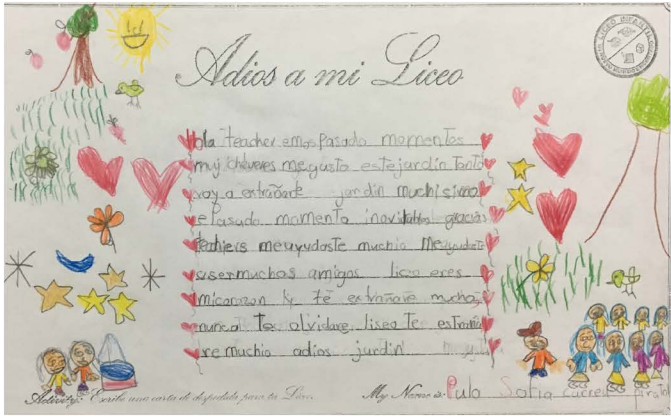 Adios a mi Liceo
LICEO INFANTIL
Ola teacher emos Pasado momentos
muy chéveres megusto estejardin Tanto
voy a extrañarte jardin muchisimo
e Pasado momento gracias
meuyudaste muchio Meuyudaste
asermuchos amigos liceo eres
micorazon y te extrañare mucho,
nunca Te olvidare liseo Te estrañá
re muchio adios jardin
Activity: Escribe una carta de despedida para tu Liceo
My Name is: Sofia